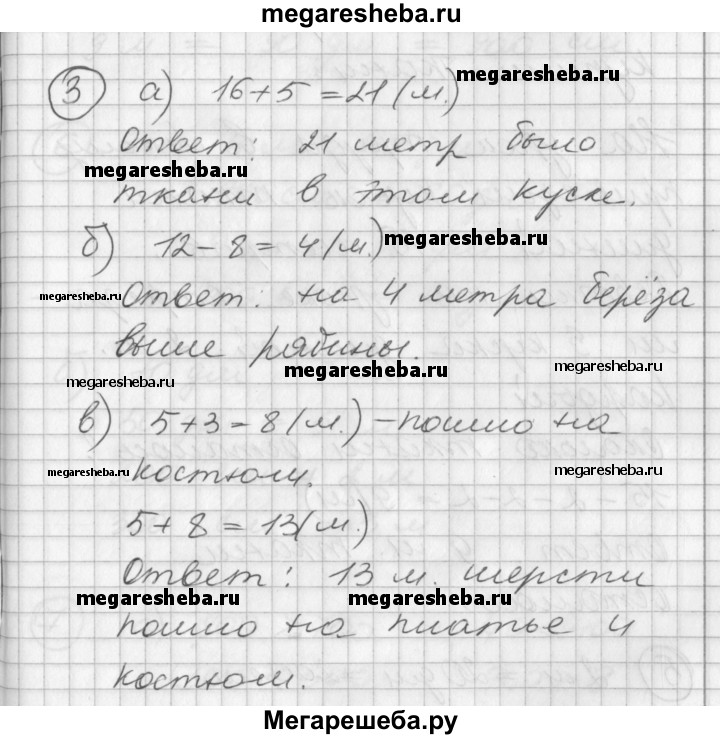 megaresheba.ru
3 а) 16+5=21(м.) megaresheba.ru
Ответ: 21 метр было
megaresheba.ru
ткани в этом куске.
б) 12-8=4(м.) megaresheba.ru
megaresheba.ru Ответ: на 4 метра берёза
выше рябины.
megaresheba.ru megaresheba.ru megaresheba.ru
в) 5+3=8(м.)-пошло на
megaresheba.ru костюм. megaresheba.ru
5+8=13(м.)
Ответ: 13 м. шерсти
megaresheba.ru megaresheba.ru
пошло на платье и megaresheba.ru
костюм.
Мегарешеба.ру